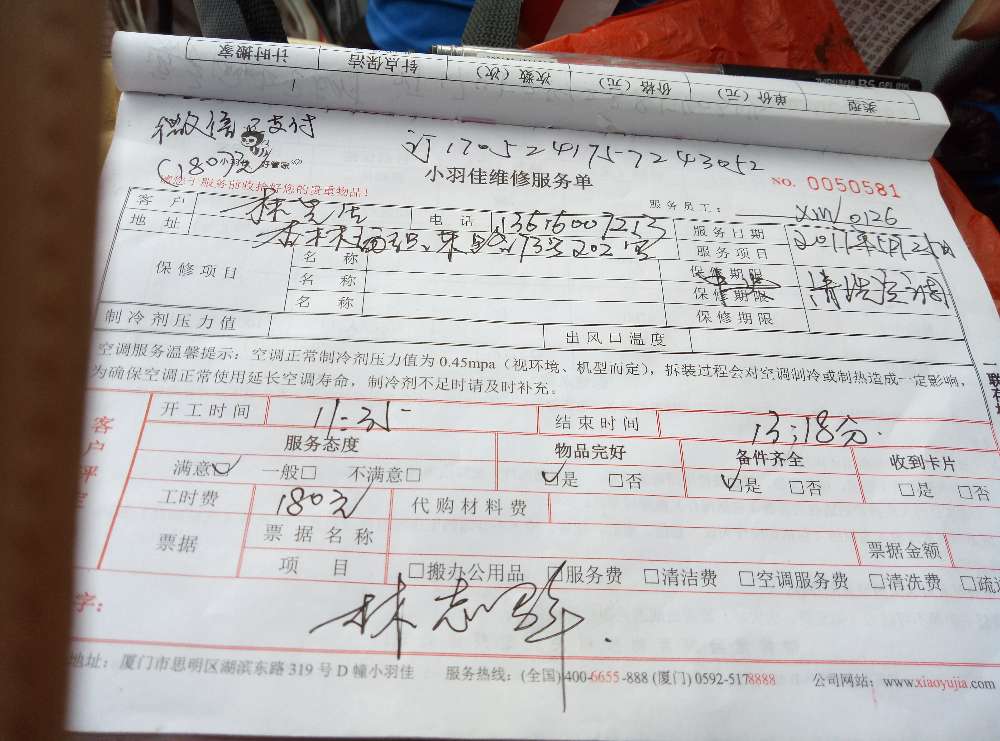 类型 单价（元） 价格（元） 次数（次） 钟点保洁 计时搬家
微信已支付
订170524175-7243052
(180元)
小羽佳 好管家
小羽佳维修服务单
NO. 0050581
请您于服务前收捡好您的贵重物品！
服务员工： XM/0126
客户 电话
服务日期
地址 服务项目
保修项目
名称 保修期限
名称 保修期限
名称 保修期限
制冷剂压力值 出风口温度
空调服务温馨提示：空调正常制冷剂压力值为 0.45mpa（视环境、机型而定），拆装过程会对空调制冷或制热造成一定影响，
为确保空调正常使用延长空调寿命，制冷剂不足时请及时补充。
开工时间 11:35 结束时间 13:18分.
服务态度 物品完好 备件齐全 收到卡片
满意☑ 一般□ 不满意□ ☑是 □否 ☑是 □否 □是 □否
工时费 180元 代购材料费
票据 票据名称 票据金额
项目 □搬办公用品 □服务费 □清洁费 □空调服务费 □清洗费
字：
地址：厦门市思明区湖滨东路 319 号 D 幢小羽佳 服务热线：(全国) 400-6655-888 (厦门) 0592-5178888 公司网站：www.xiaoyujia.com